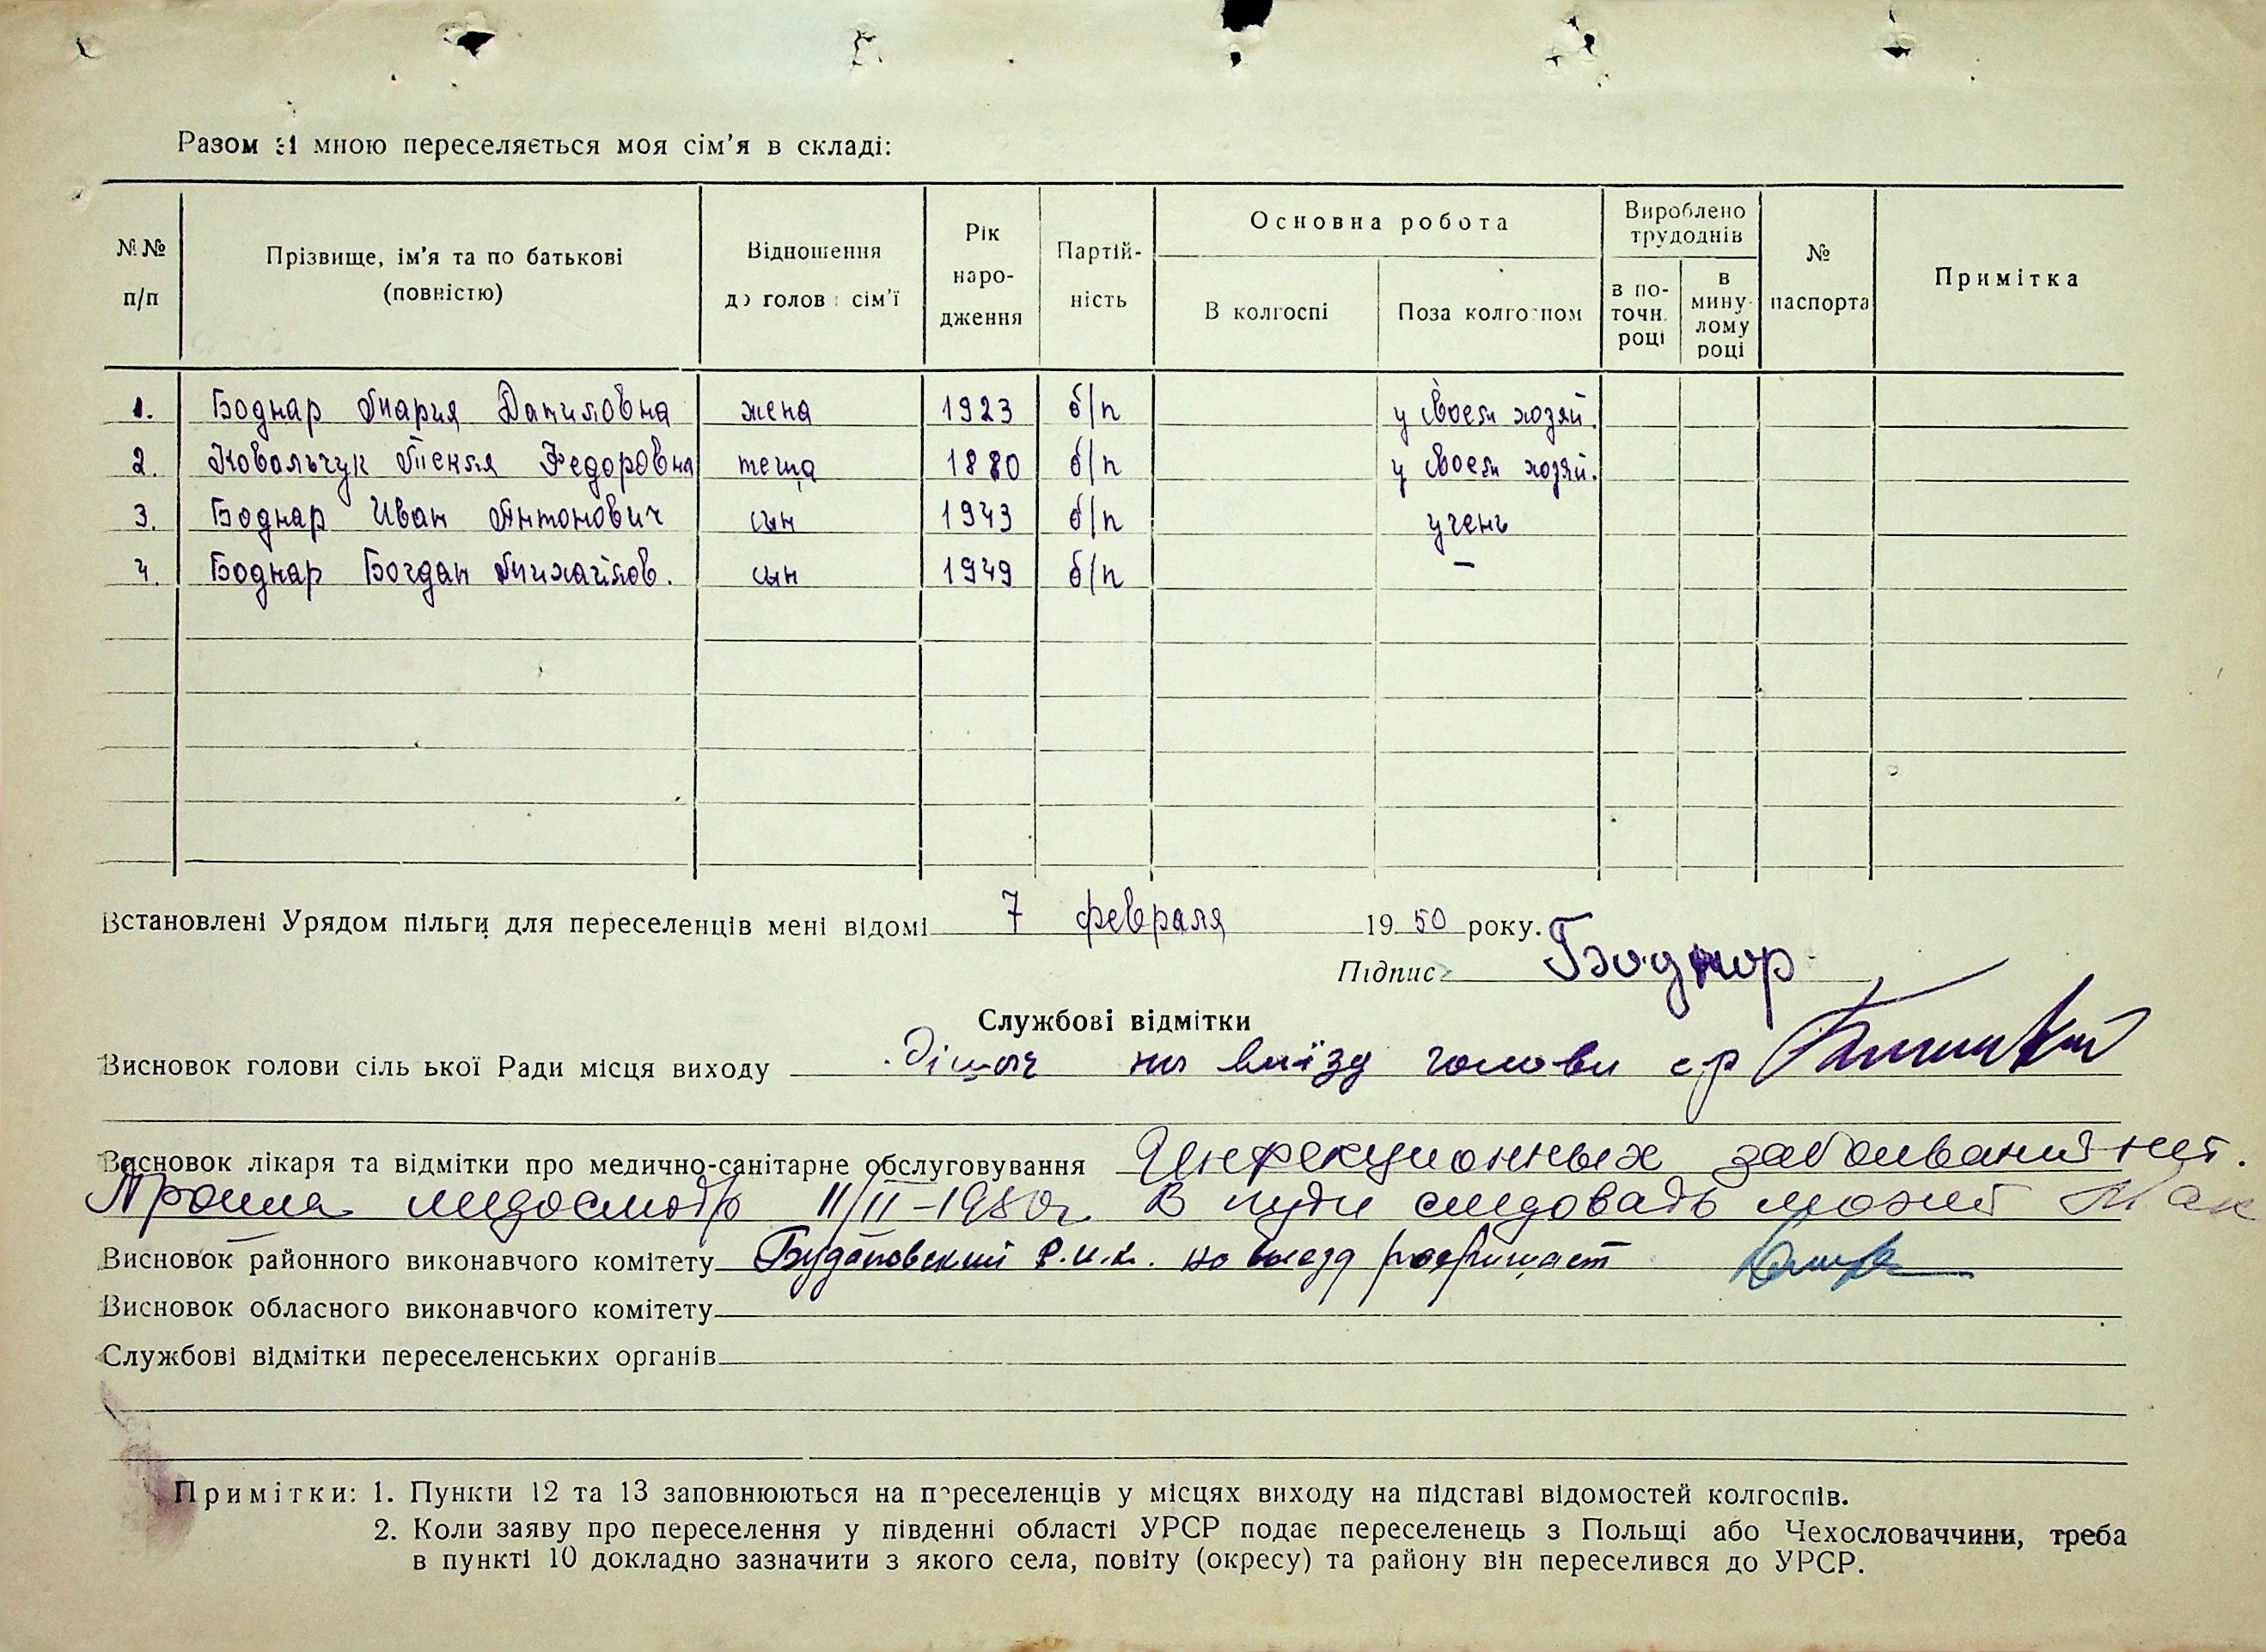 Разом зі мною переселяється моя сім'я в складі:
№№ п/п
Прізвище, ім'я та по батькові (повністю)
Відношення до голови сім'ї
Рік народження
Партійність
Основна робота
В колгоспі
Поза колгоспом
Вироблено трудоднів
в поточн. році
в минулому році
№ паспорта
Примітка
1. Боднар Мария Даниловна жена 1923 б/п у своем хозяй.
2. Ковальчук Текля Федоровна теща 1880 б/п у своем хозяй.
3. Боднар Иван Антонович сын 1943 б/п учень
4. Боднар Богдан Михайлов. сын 1949 б/п –
Встановлені Урядом пільги для переселенців мені відомі 7 февраля 1950 року.
Підпис Боднор
Службові відмітки
Висновок голови сільської Ради місця виходу на виїзд голови с/р
Висновок лікаря та відмітки про медично-санітарне обслуговування Инфекционных заболиваний нет.
Прошла медосмотр 11/II-1950г. В пути следовать может
Висновок районного виконавчого комітету Будановский Р.И.К. на выезд
Висновок обласного виконавчого комітету
Службові відмітки переселенських органів
Примітки: 1. Пункти 12 та 13 заповнюються на переселенців у місцях виходу на підставі відомостей колгоспів.
2. Коли заяву про переселення у південні області УРСР подає переселенець з Польщі або Чехословаччини, треба
в пункті 10 докладно зазначити з якого села, повіту (окресу) та району він переселився до УРСР.